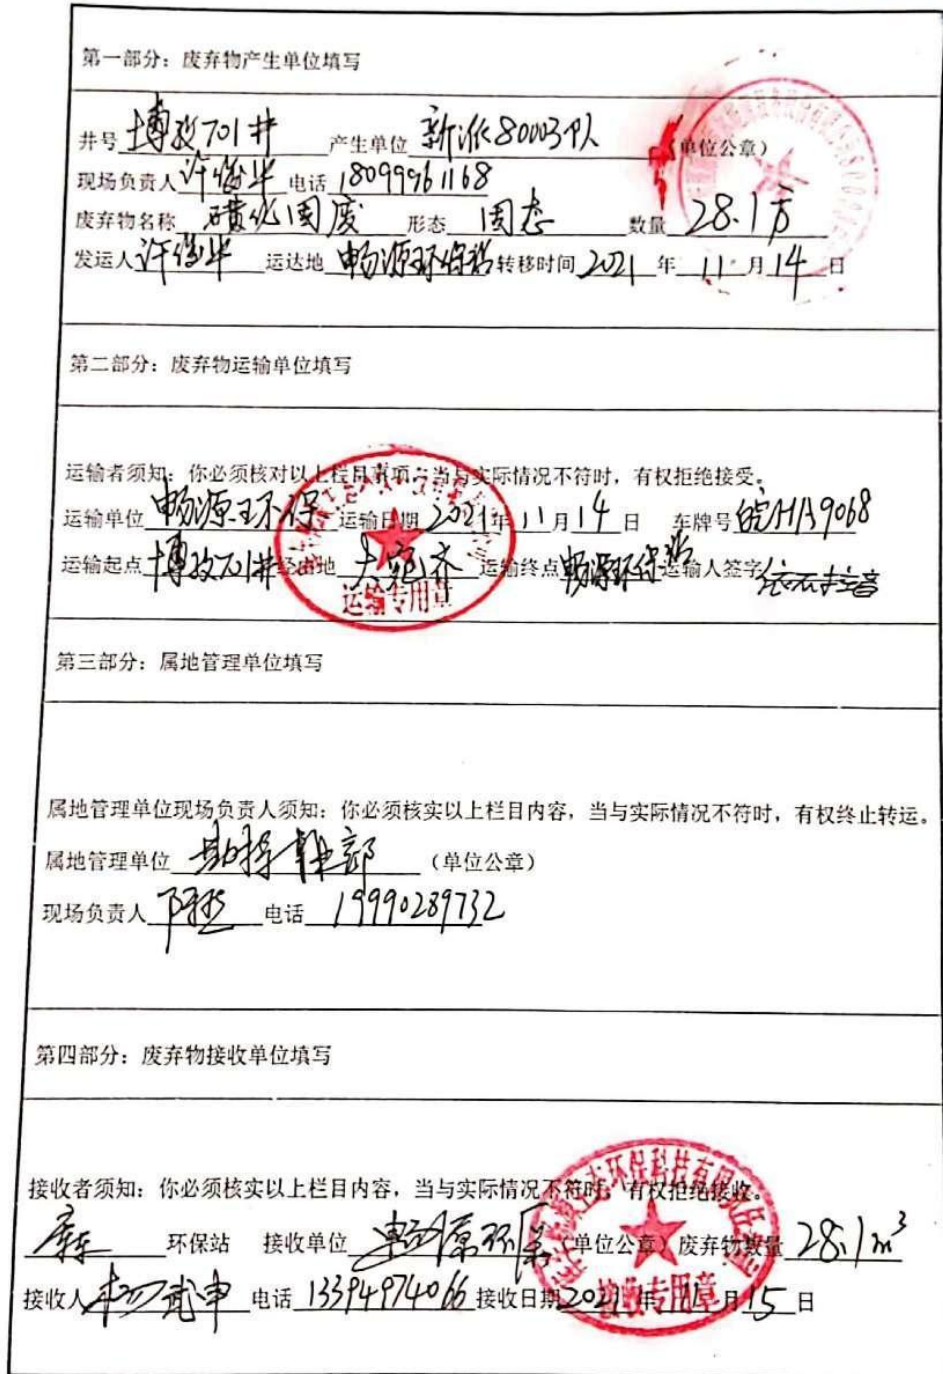 第一部分：废弃物产生单位填写
井号 博孜701井 产生单位 新派80003队 （单位公章）
现场负责人 许俊华 电话 18099961168
废弃物名称 磺化固废 形态 固态 数量 28.1方
发运人 许俊华 运达地 畅源环保站 转移时间 2021 年 11 月 14 日
第二部分：废弃物运输单位填写
运输者须知：你必须核对以上栏目事项，当与实际情况不符时，有权拒绝接受。
运输单位 畅源环保 运输日期 2021 年 11 月 14 日 车牌号 皖H19068
运输起点 博孜701井 经由地 大宛齐 运输终点 畅源环保站 运输人签字
运输专用章
第三部分：属地管理单位填写
属地管理单位现场负责人须知：你必须核实以上栏目内容，当与实际情况不符时，有权终止转运。
属地管理单位 （单位公章）
现场负责人 电话 19990289732
第四部分：废弃物接收单位填写
接收者须知：你必须核实以上栏目内容，当与实际情况不符时，有权拒绝接收。
环保站 接收单位 畅源环保 （单位公章）废弃物数量 28.1m³
接收人 杨武申 电话 13394974066 接收日期 2021 年 11 月 15 日
接收专用章